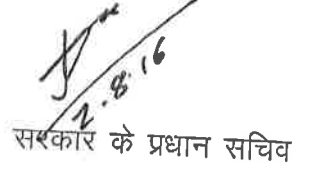 2.8.16
सरकार के प्रधान सचिव